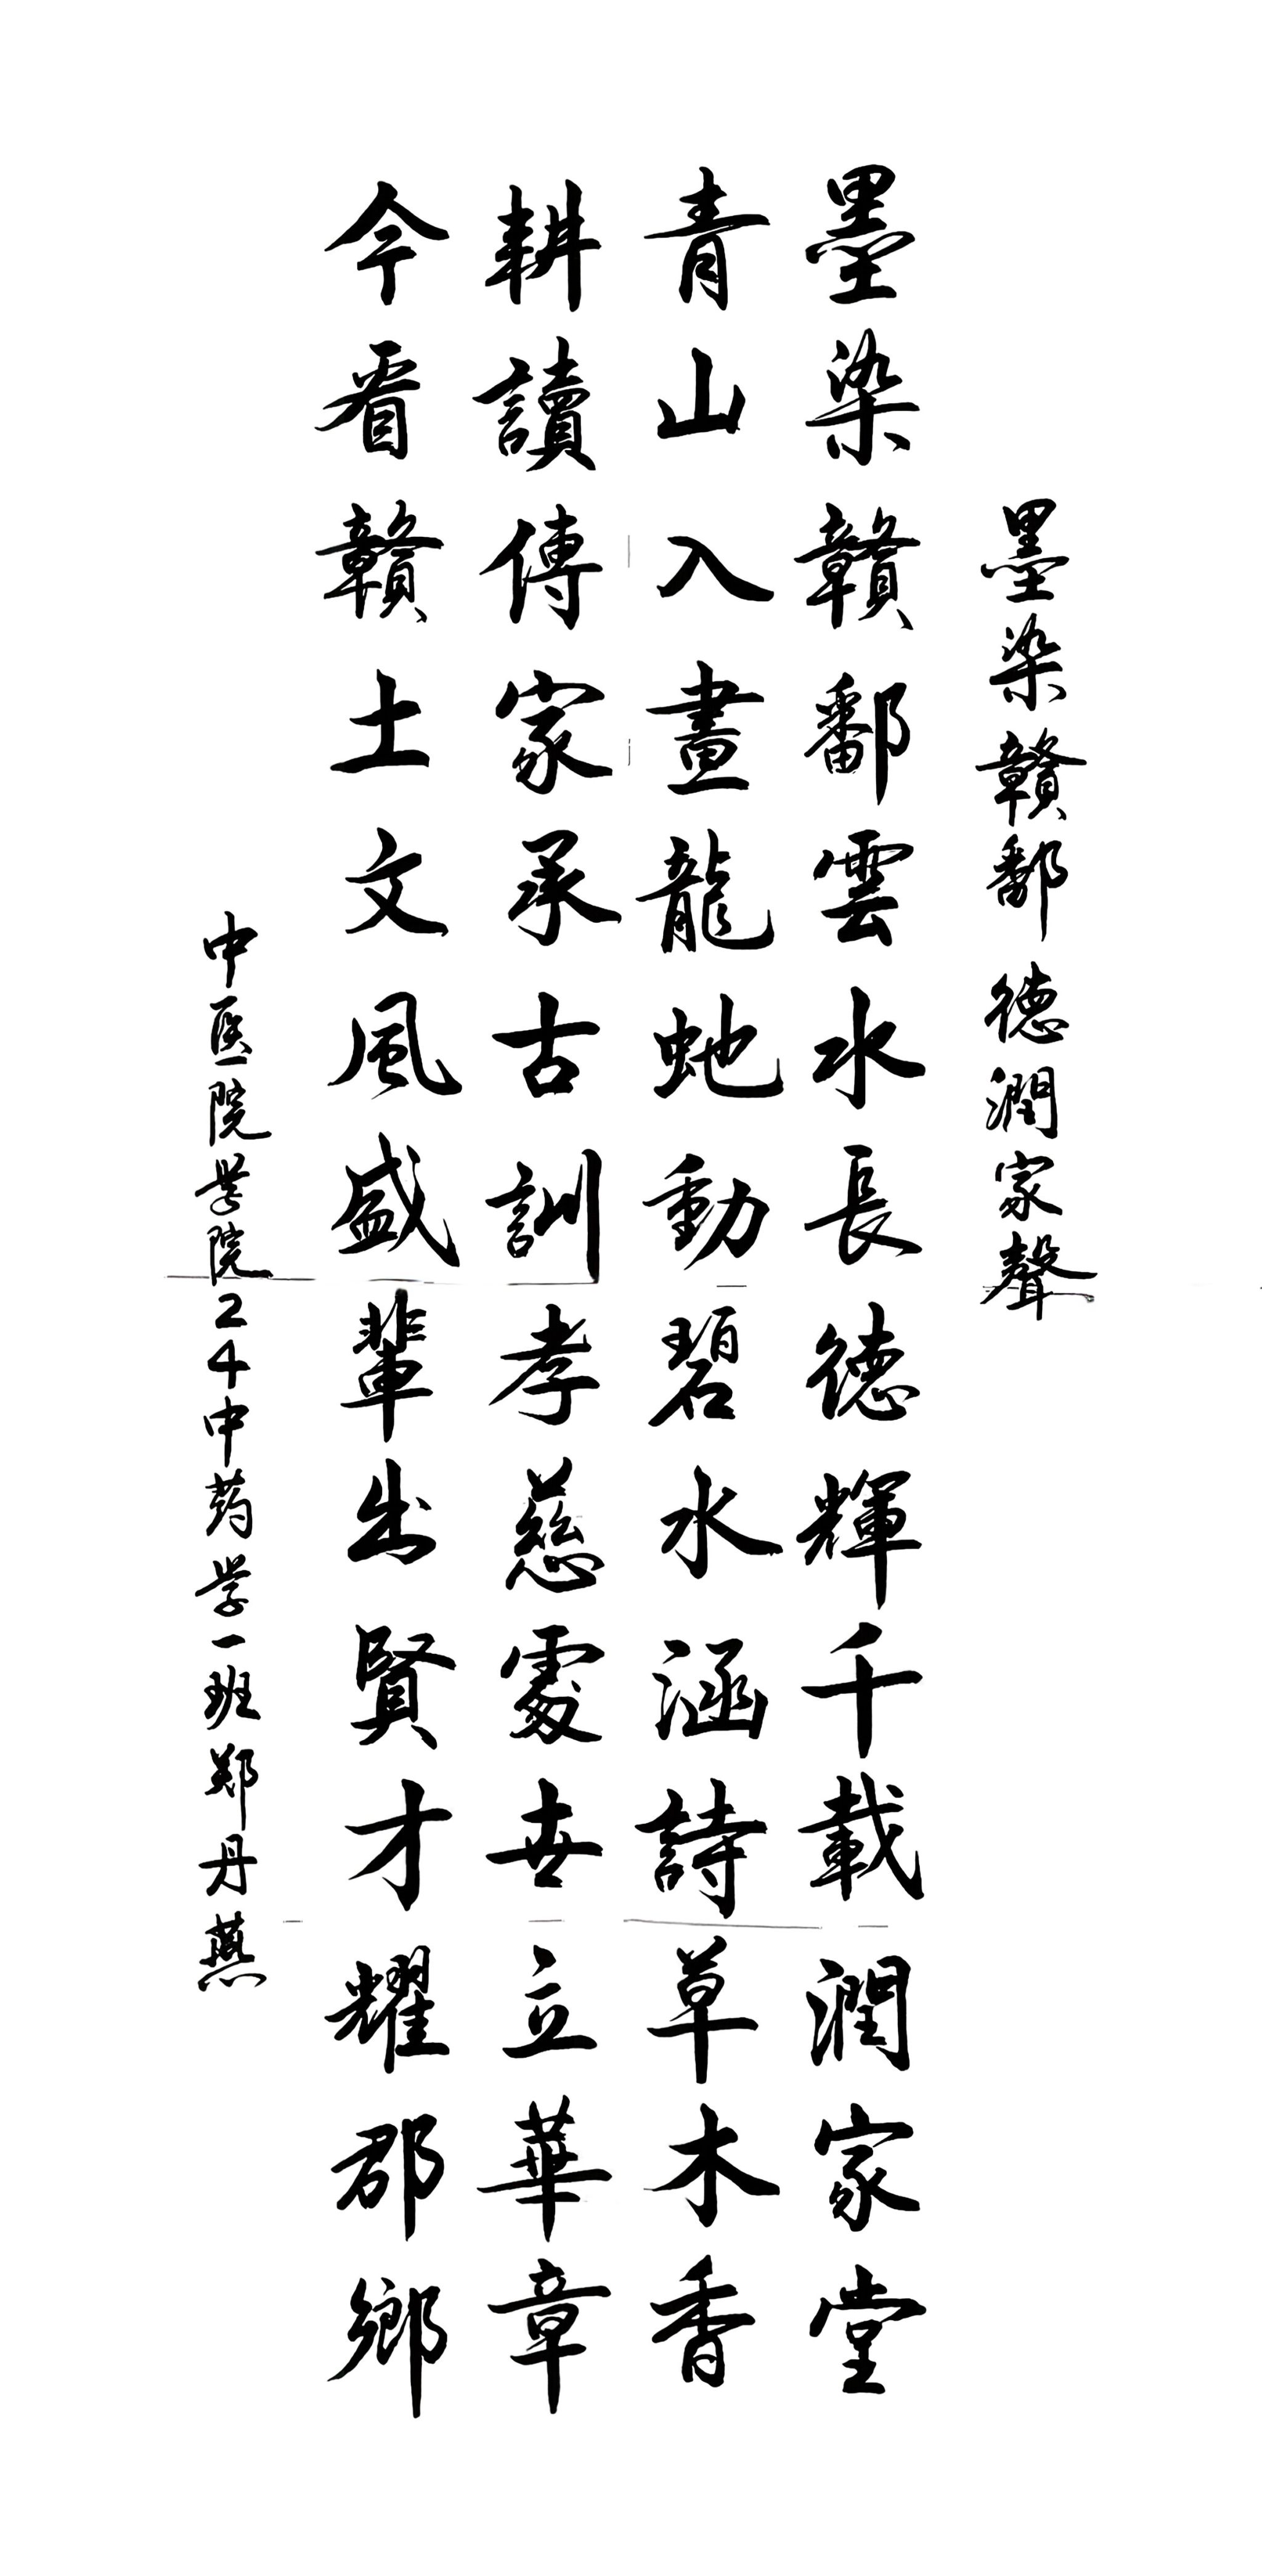 墨染贛鄱德潤家聲
墨染贛鄱雲水長德輝千載潤家堂
青山入畫龍虵動碧水涵詩草木香
耕讀傳家承古訓孝慈處世立華章
今看贛土文風盛輩出賢才耀郡鄉
中医院学院24中药学一班郑丹燕